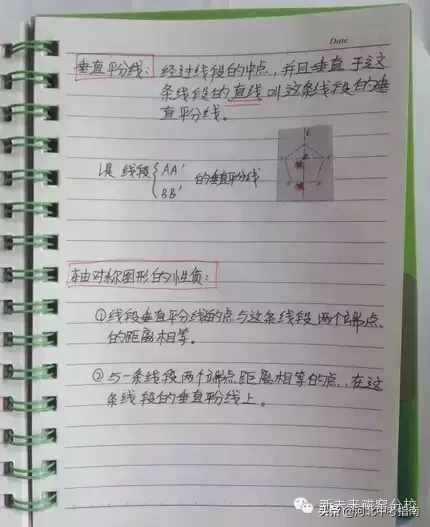 Date
垂直平分线：经过线段的中点，并且垂直于这
条线段的直线叫这条线段的垂
直平分线。
l是线段{AA′
BB′
的垂直平分线
轴对称图形的性质：
①线段垂直平分线的点与这条线段两个端点
的距离相等。
②与一条线段两个端点距离相等的点，在这
条线段的垂直平分线上。
新未来磁窑分校
头条@河北中考指南